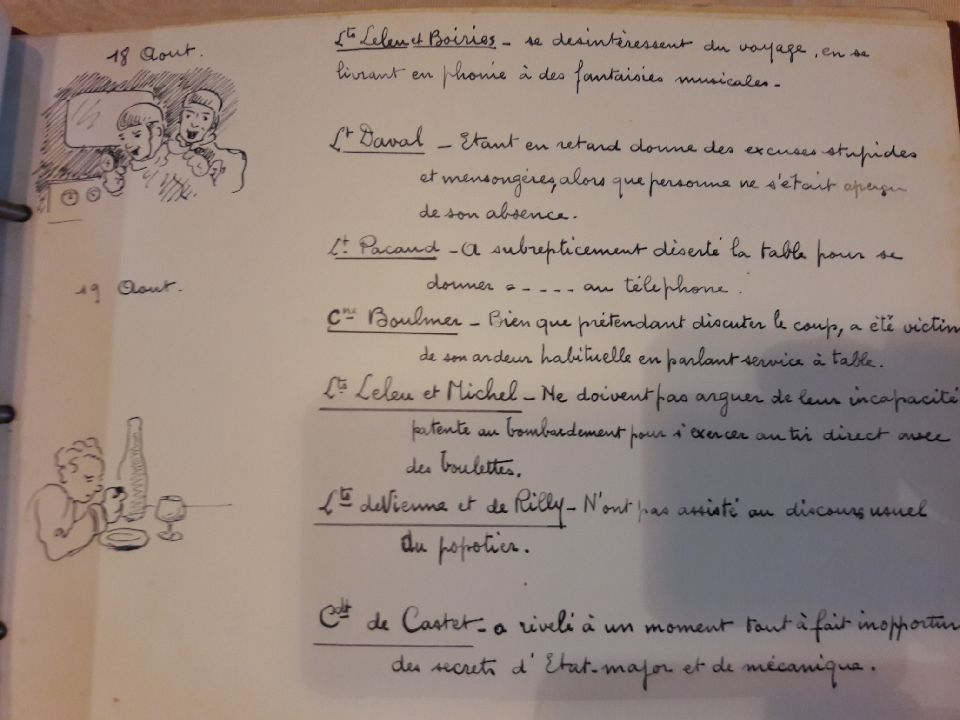 18 Aout.
Lts Leleu et Boiries - se desintéressent du voyage, en se
livrant en phonie à des fantaisies musicales.
Lt Daval - Etant en retard donne des excuses stupides
et mensongères, alors que personne ne s'était aperçu
de son absence.
Lt Pacaud - A subrepticement déserté la table pour se
donner a - - - - au téléphone.
19 Aout.
Cne Boulmer - Bien que prétendant discuter le coup, a été victim
de son ardeur habituelle en parlant service à table.
Lts Leleu et Michel - Ne doivent pas arguer de leur incapacité
patente au bombardement pour s'exercer au tir direct avec
des boulettes.
Lts de Vienne et de Rilly - N'ont pas assisté au discours usuel
du popotier.
Cdt de Castet - a révélé à un moment tout à fait inopportun
des secrets d'Etat-major et de mécanique.